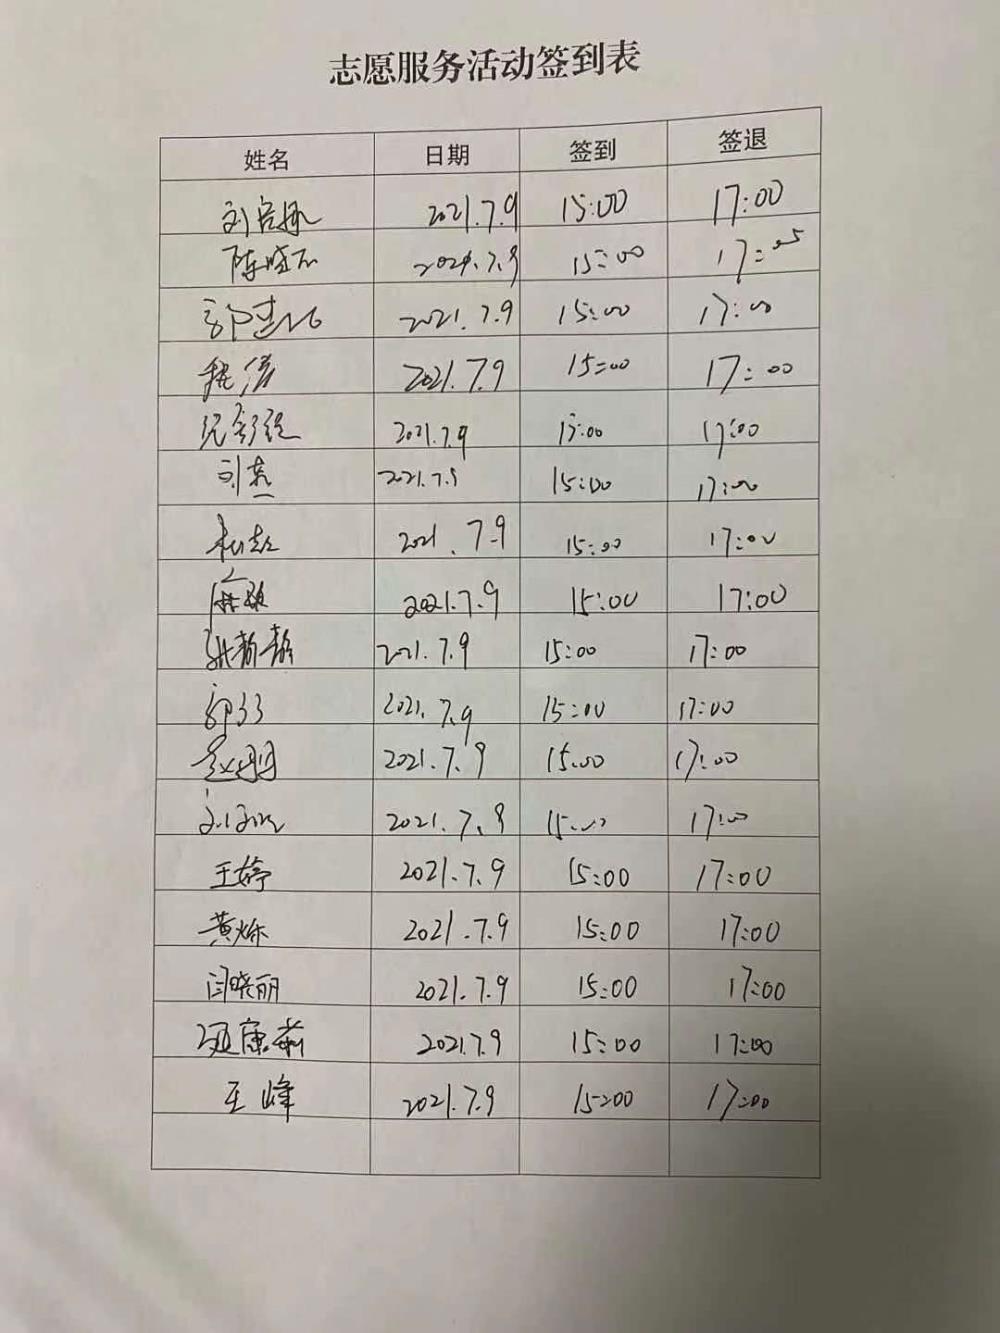 志愿服务活动签到表
姓名 日期 签到 签退
刘 2021.7.9 15:00 17:00
陈晓 2021.7.9 15:00 17:05
郭建 2021.7.9 15:00 17:00
2021.7.9 15:00 17:00
2021.7.9 15:00 17:00
刘 2021.7.9 15:00 17:00
杜赵 2021.7.9 15:00 17:00
2021.7.9 15:00 17:00
张静静 2021.7.9 15:00 17:00
郭 2021.7.9 15:00 17:00
2021.7.9 15:00 17:00
2021.7.9 15:00 17:00
王婷 2021.7.9 15:00 17:00
黄烁 2021.7.9 15:00 17:00
闫晓丽 2021.7.9 15:00 17:00
康莉 2021.7.9 15:00 17:00
王峰 2021.7.9 15:00 17:00